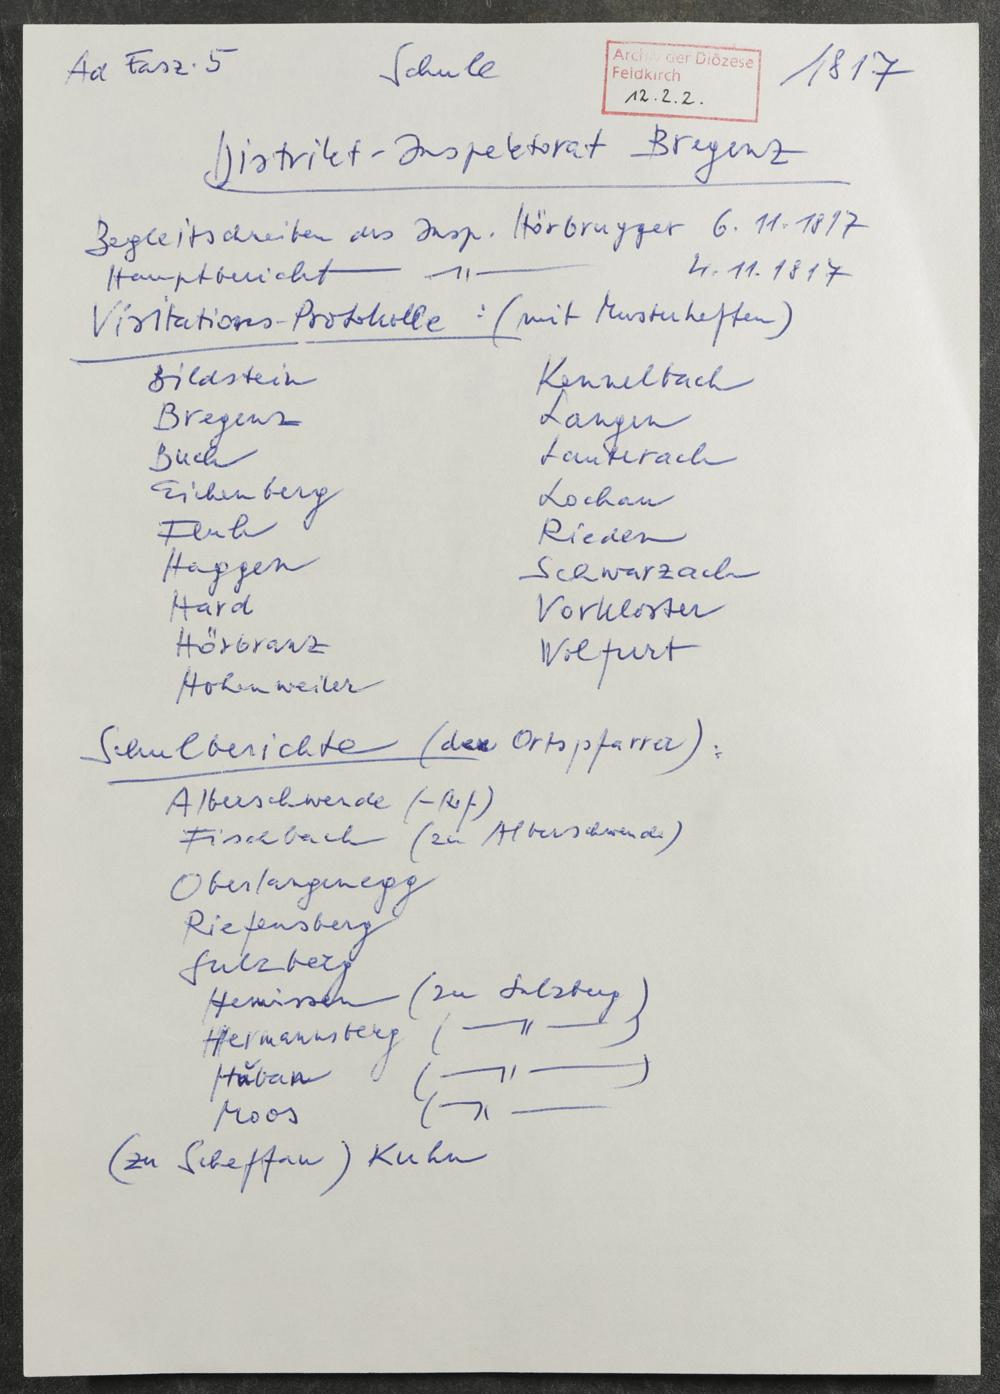 Ad Fasz. 5 Schule 1817
Archiv der Diözese
Feldkirch
12.2.2.
Distrikt-Inspektorat Bregenz
Begleitschreiben des Insp. Hörbrugger 6. 11. 1817
Hauptbericht — " — 4. 11. 1817
Visitations-Protokolle : (mit Musterheften)
Bildstein Kennelbach
Bregenz Langen
Buch Lauterach
Eichenberg Lochau
Fluh Rieden
Haggen Schwarzach
Hard Vorkloster
Hörbranz Wolfurt
Hohenweiler
Schulberichte (der Ortspfarrer) :
Alberschwende (-Ref.)
Fischbach (zu Alberschwende)
Oberlangenegg
Riefensberg
Sulzberg
(zu Sulzberg)
Hermannsberg ( — " — )
( — " — )
Moos ( — " —
(zu Scheffau) Kuhn